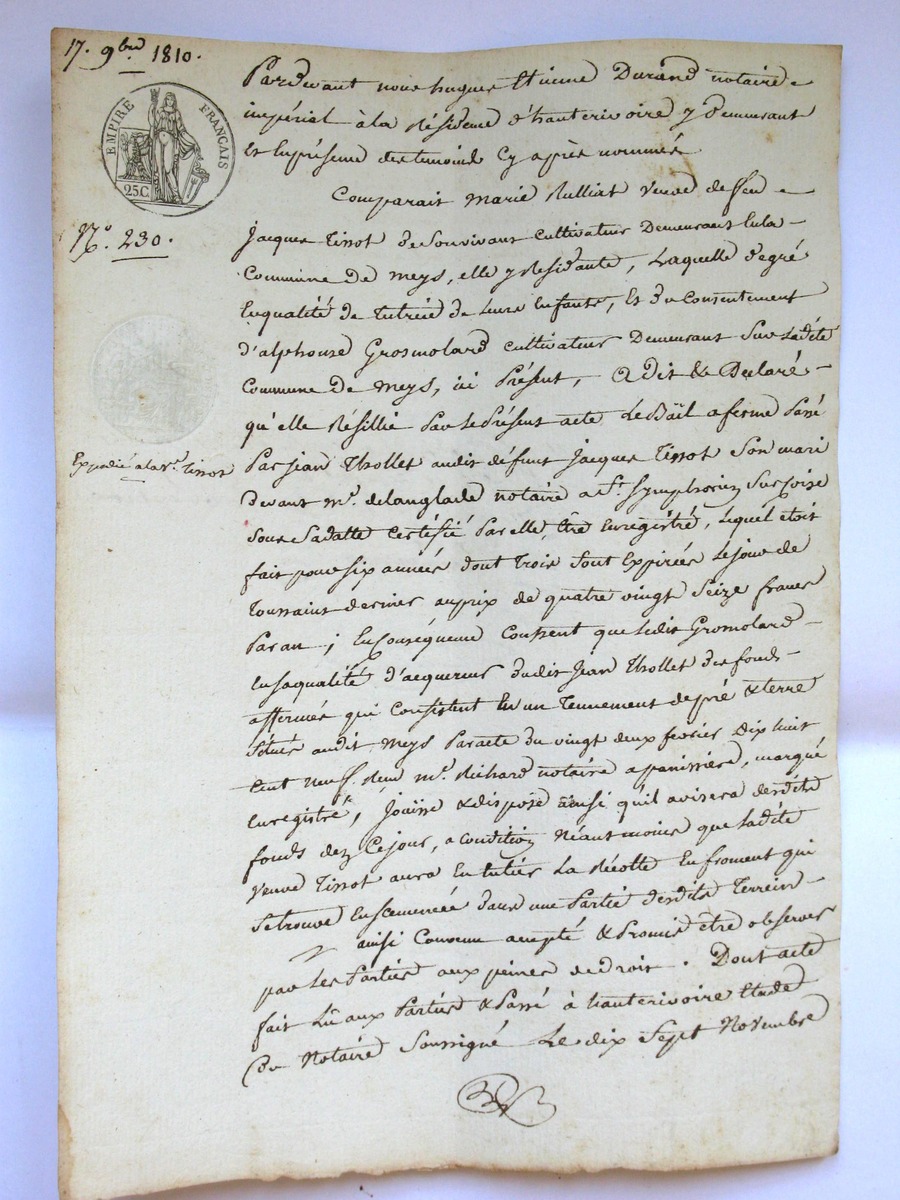 17. 9bre 1810.
EMPIRE FRANÇAIS
25C.
N.° 230.
Expédié a la v.e Tissot
Pardevant nous hugues Etienne Durand notaire
impérial à la Résidence d'hauterivoire y demeurant
Et En présence des temoins Cy après nommés
Comparait marie Rulliat veuve de feu
Jacques Tissot de Son vivant cultivateur Demeurant En la
Commune de meys, elle y Residante, Laquelle de gré
En qualité de tutrice de leurs Enfants, Et du Consentement
d'alphonze Grosmolard cultivateur Demeurant Sur Ladite
Commune de meys, ici Présent, A dit & Déclaré
qu'elle Résillie Par le Présent acte Le Bail a ferme Passé
Par jean Thollet audit défunt jacques Tissot Son mari
Devant m.e delanglade notaire a S.t Symphorien Sur Coize
Sous Sa datte certifié Par elle, Être Enregistré, Lequel étoit
fait pour six années dont Trois Sont Expirées Le jour de
Toussaint dernier au prix de quatre vingt Seize francs
Par an ; En Conséquence Consent que Ledit Gromolard
En sa qualité d'acquereur dudit Jean Thollet des fonds
affermés qui Consistent En un Tennement de pré & terre
Situés audit Meys Par acte du vingt deux fevrier Dix huit
Cent neuf. Reçu m.e Richard notaire a panissière,
Enregistré, jouisse & dispose ainsi qu'il avisera desdits
fonds dez Ce jour, a condition Néantmoins que Ladite
veuve Tissot aura En Entier La Récolte En froment qui
Se trouve Ensemencée dans une Partie desdits Terrein
ainsi Convenu accepté & Promis être observer
par Les Parties aux peines de Droit. Dont acte
fait Lû aux Parties & Passé à hauterivoire Etude
Du Notaire Soussigné Le dix Sept Novembre